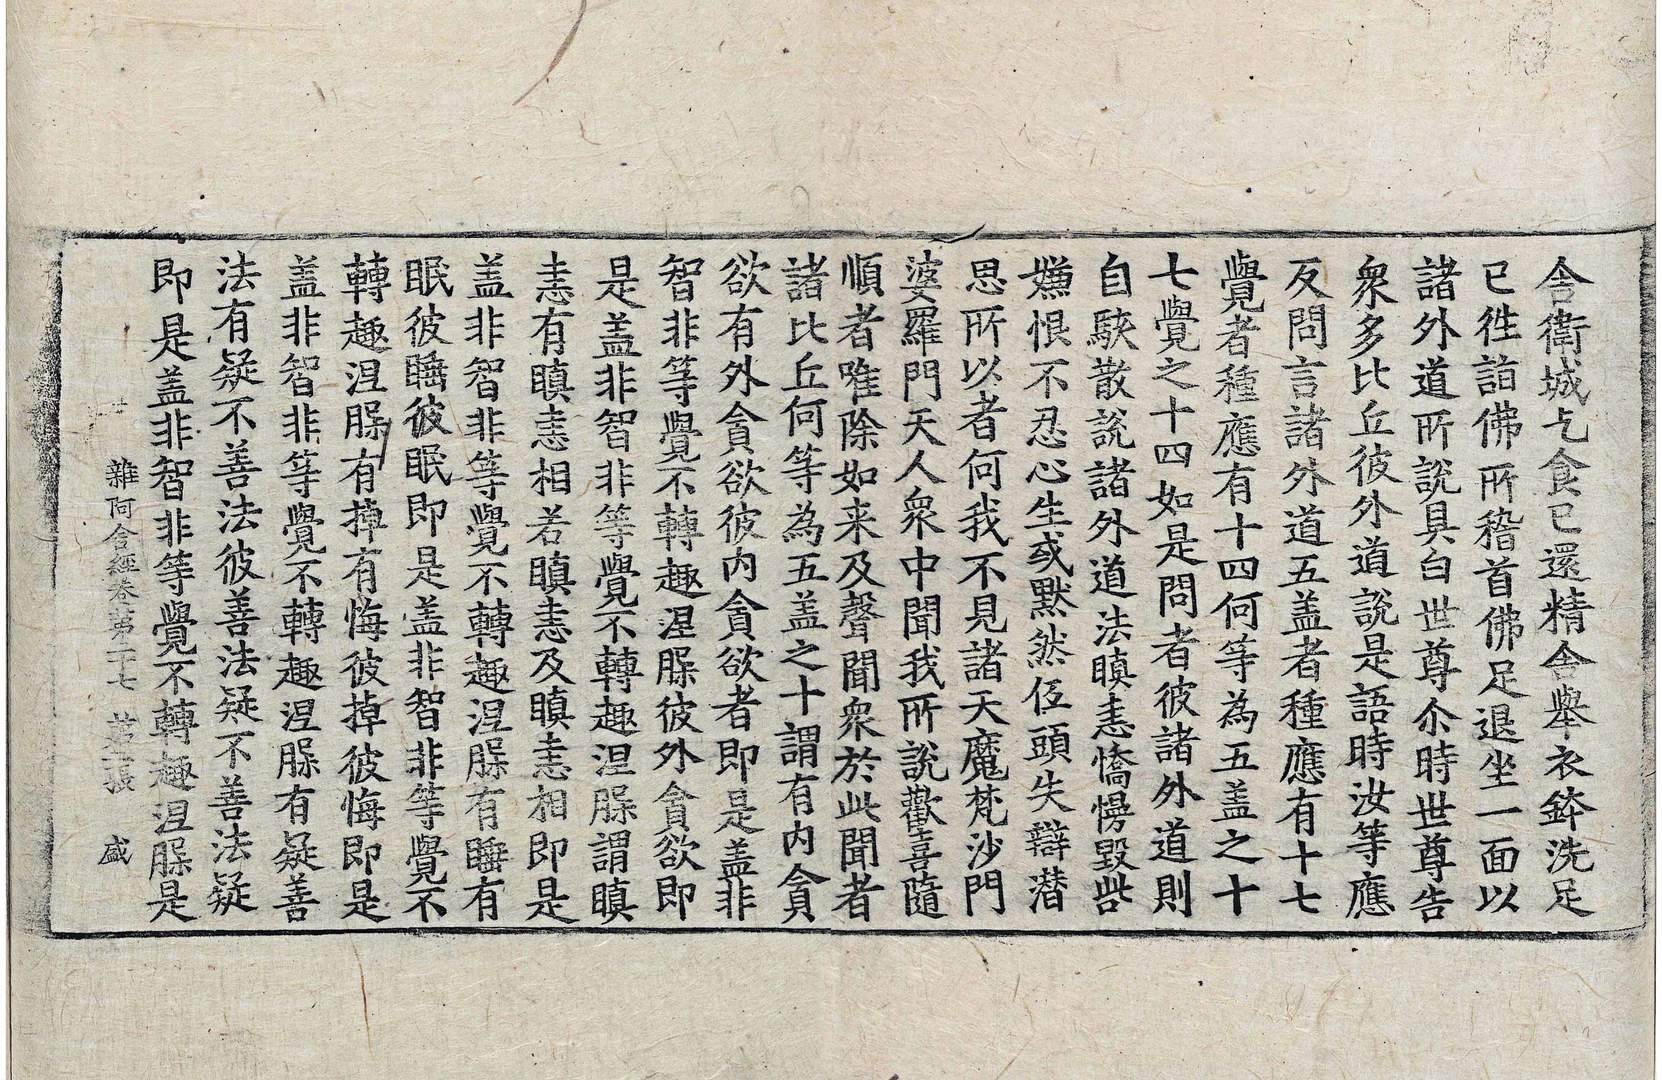 舎衛城乞食已還精舎舉衣鉢洗足
已徃詣佛所稽首佛足退坐一面以
諸外道所說具白世尊尒時世尊告
衆多比丘彼外道說是語時汝等應
反問言諸外道五盖者種應有十七
覺者種應有十四何等為五盖之十
七覺之十四如是問者彼諸外道則
自駃散說諸外道法瞋恚憍慢毀呰
嫌恨不忍心生或默然伍頭失辯潛
思所以者何我不見諸天魔梵沙門
婆羅門天人衆中聞我所說歡喜隨
順者唯除如来及聲聞衆於此聞者
諸比丘何等為五盖之十謂有內貪
欲有外貪欲彼內貪欲者即是盖非
智非等覺不轉趣涅脲彼外貪欲即
是盖非智非等覺不轉趣涅脲謂瞋
恚有瞋恚相若瞋恚及瞋恚相即是
盖非智非等覺不轉趣涅脲有睡有
眠彼睡彼眠即是盖非智非等覺不
轉趣涅脲有掉有悔彼掉彼悔即是
盖非智非等覺不轉趣涅脲有疑善
法有疑不善法彼善法疑不善法疑
即是盖非智非等覺不轉趣涅脲是
雜阿含經卷第二十七 張 盛